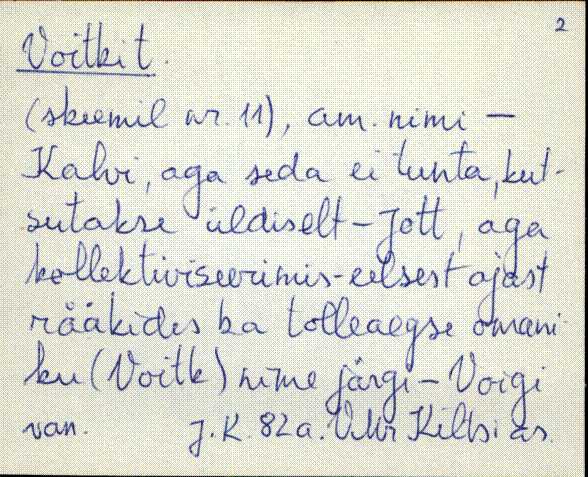 2
Voitkit.
(skeemil nr. 11), am. nimi —
Kalvi, aga seda ei tunta, kut-
sutakse üldiselt - Jott, aga
kollektiviseerimis-eelsest ajast
rääkides ka tolleaegse omani-
ku (Voitk) nime järgi - Voigi
van. J.K. 82 a. VMr Kiltsi as.